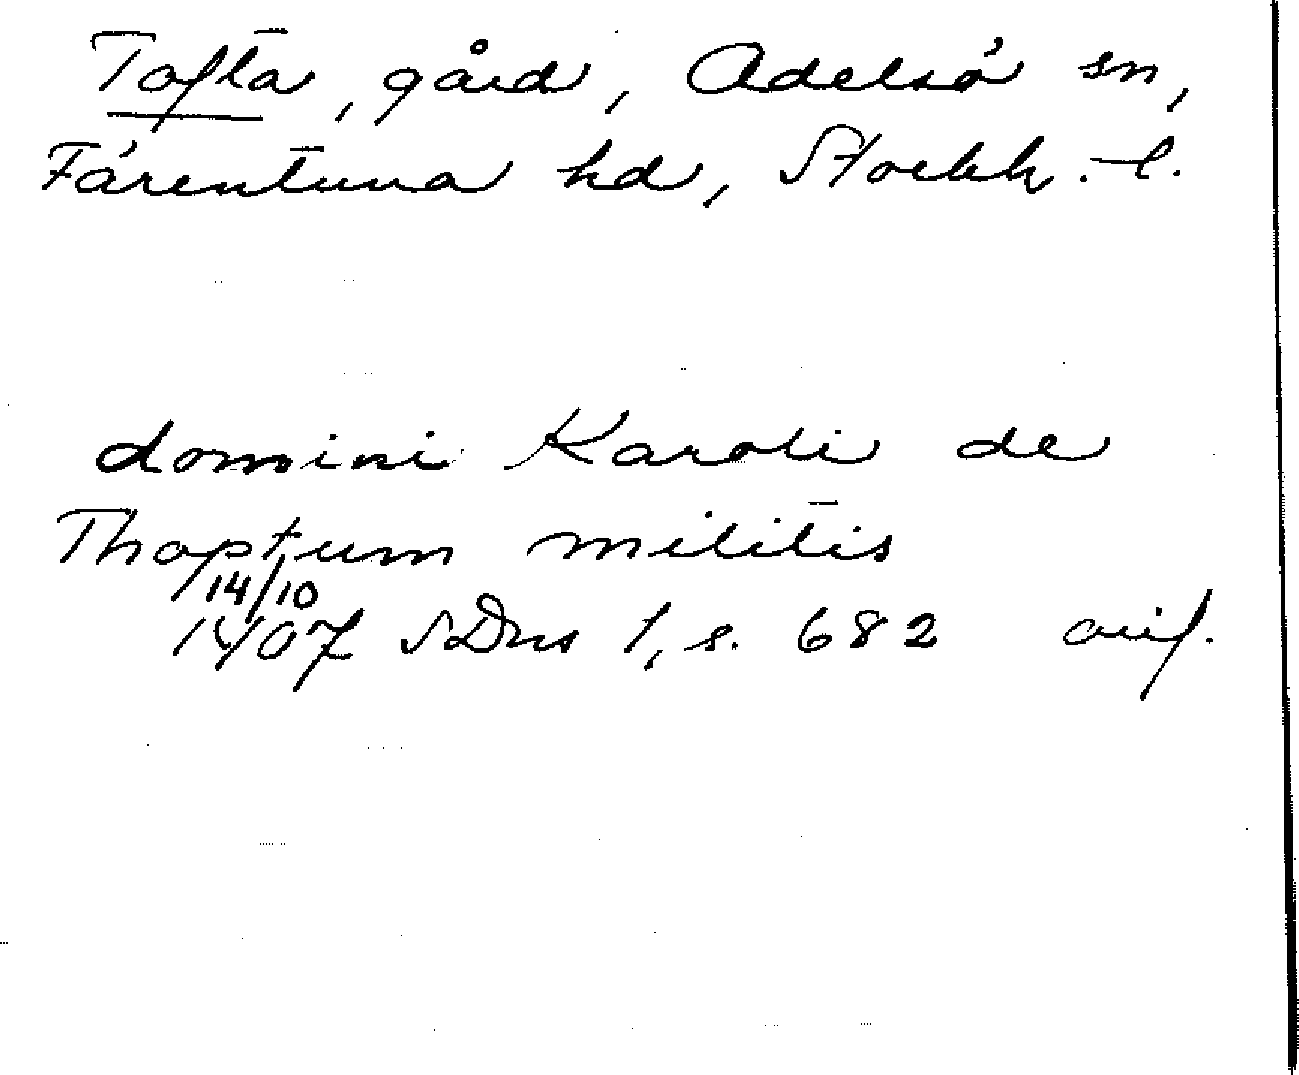 Tofta, gård, Adelsö sn,
Färentuna hd, Stockh. l.
domini Karoli de
Thoptum militis
14/10
1407 SDns 1, s. 682 avs.